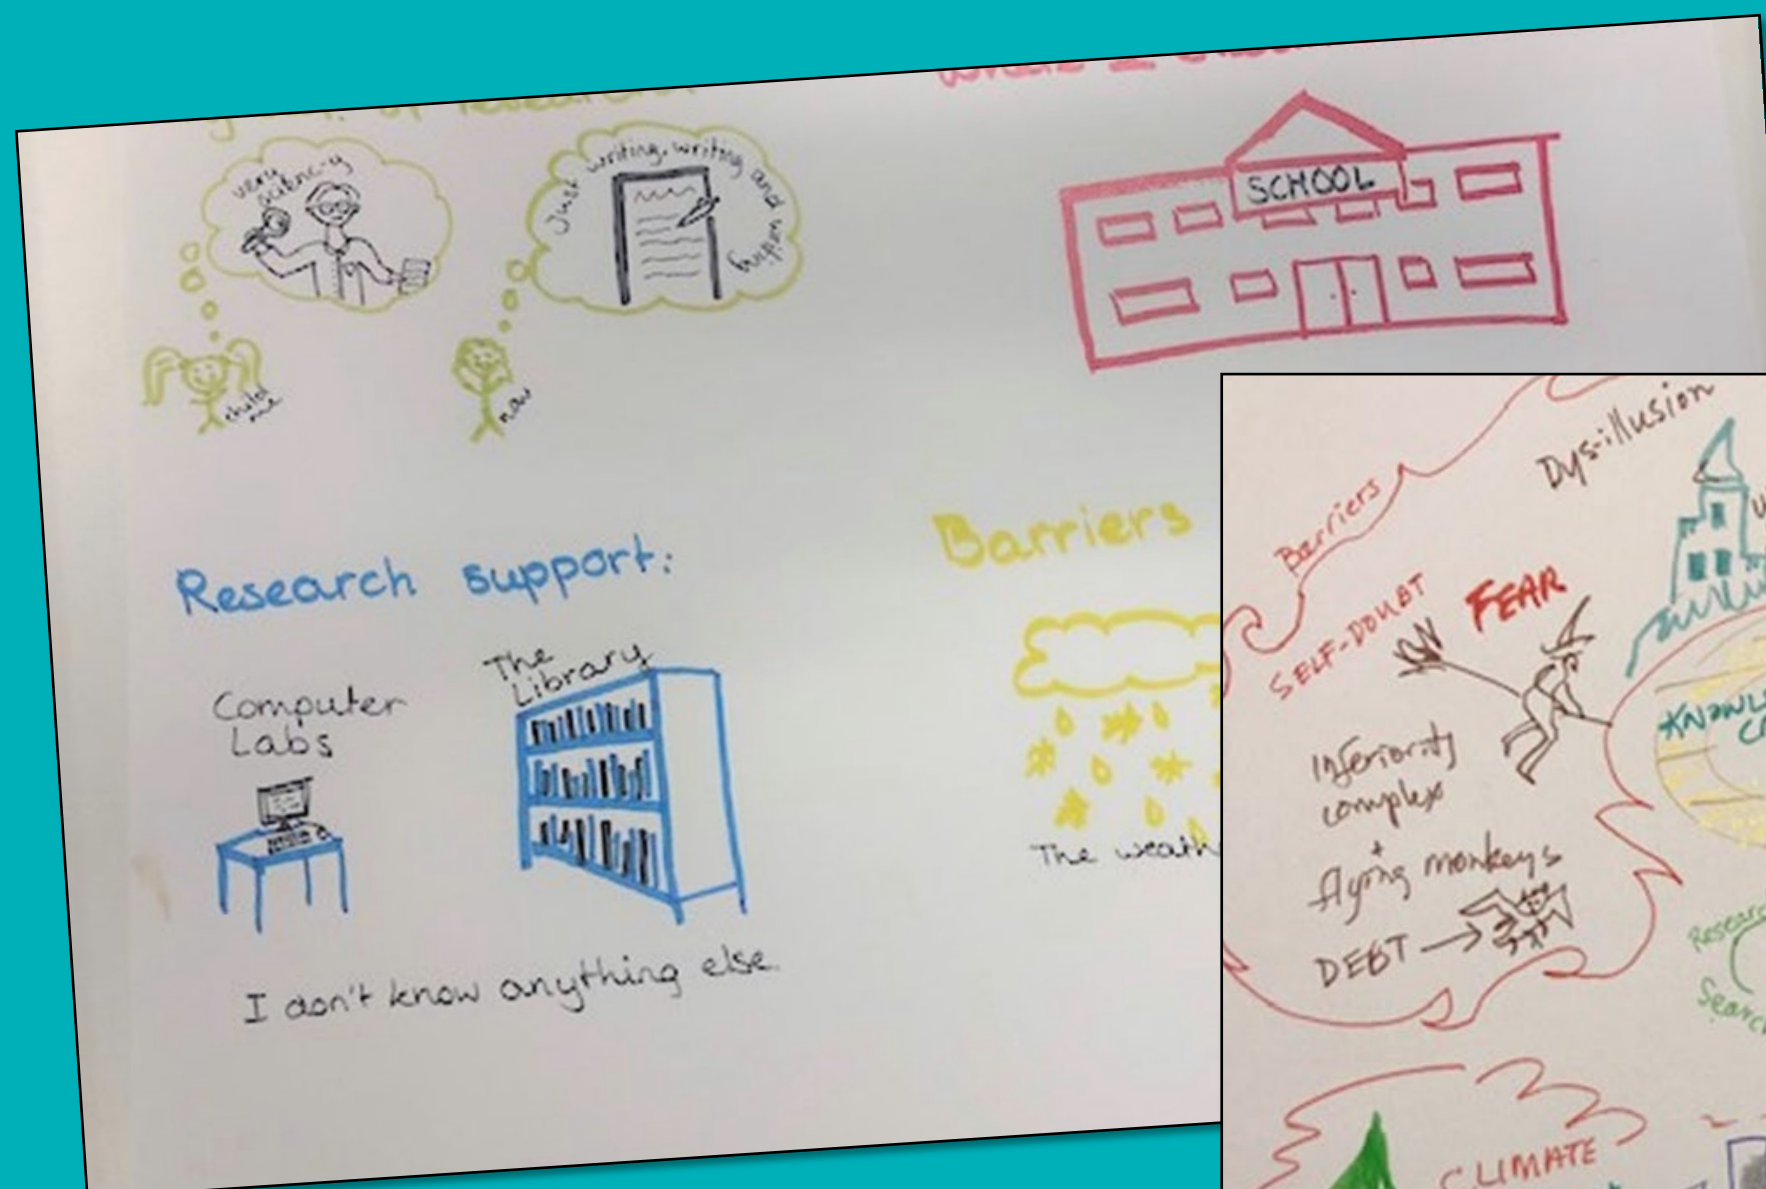 of research
very
science-y
Just writing, writing and writing
child
me
now
SCHOOL
Research support:
Computer
Labs
The
Library
I don't know anything else.
Barriers
The weath
Barriers
Dys-illusion
SELF-DOUBT
FEAR
Inferiority
complex
+
flying monkeys
DEBT →
KNOWL
Researc
Searc
CLIMATE